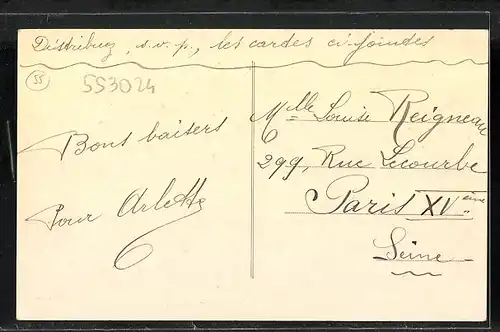 Distribuez, s.v.p., les cardes ci-jointes
55
553024
Bons baisers
Pour Arlette
Mlle Louise Reigneau
299, Rue Lecourbe
Paris XVème
Seine